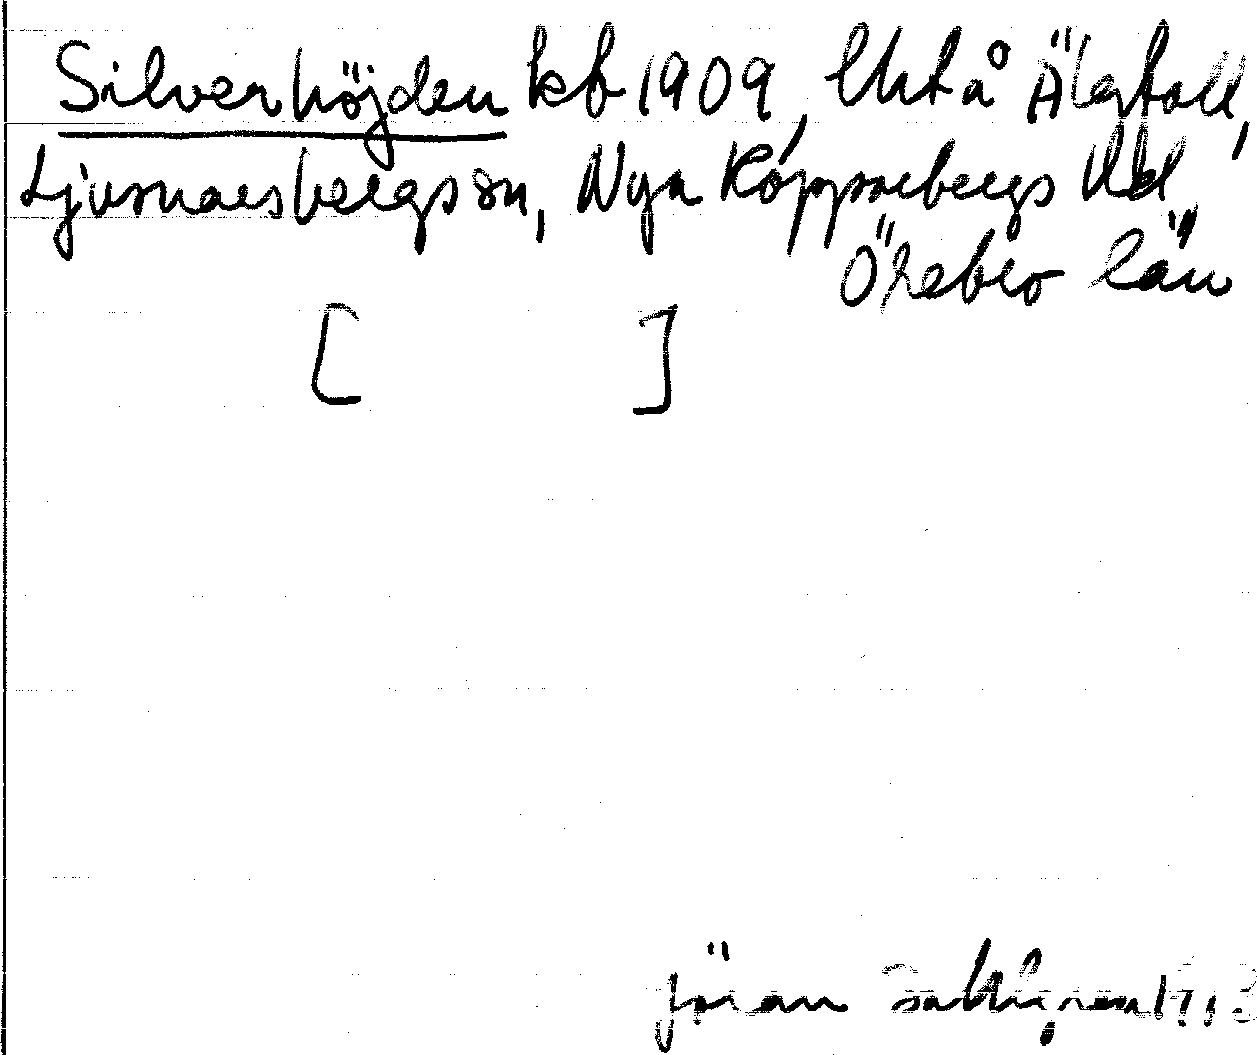 Silverhöjden kb 1909, Utt å Älgfall,
Ljusnarsbergs sn, Nya Kopparbergs hd
Örebro län
[ ]
Jöran Sahlgren